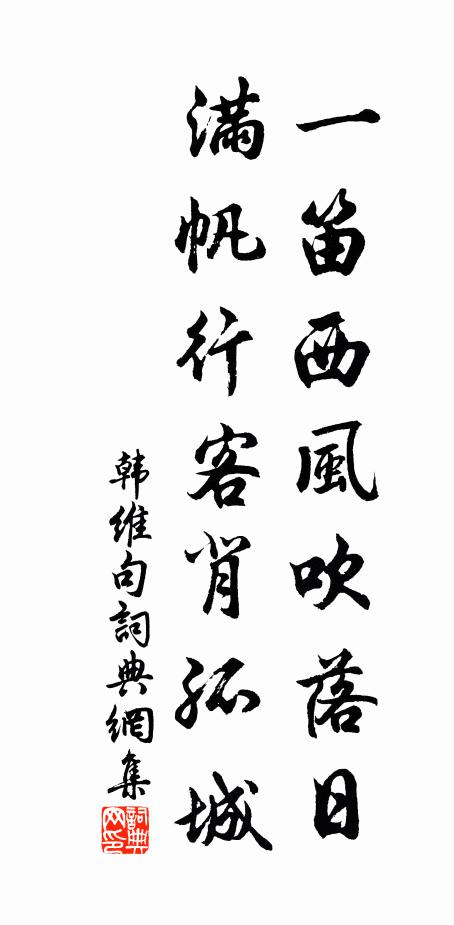 一笛西風吹落日
滿帆行客背孤城
韩维句詞典網集
詞典网印